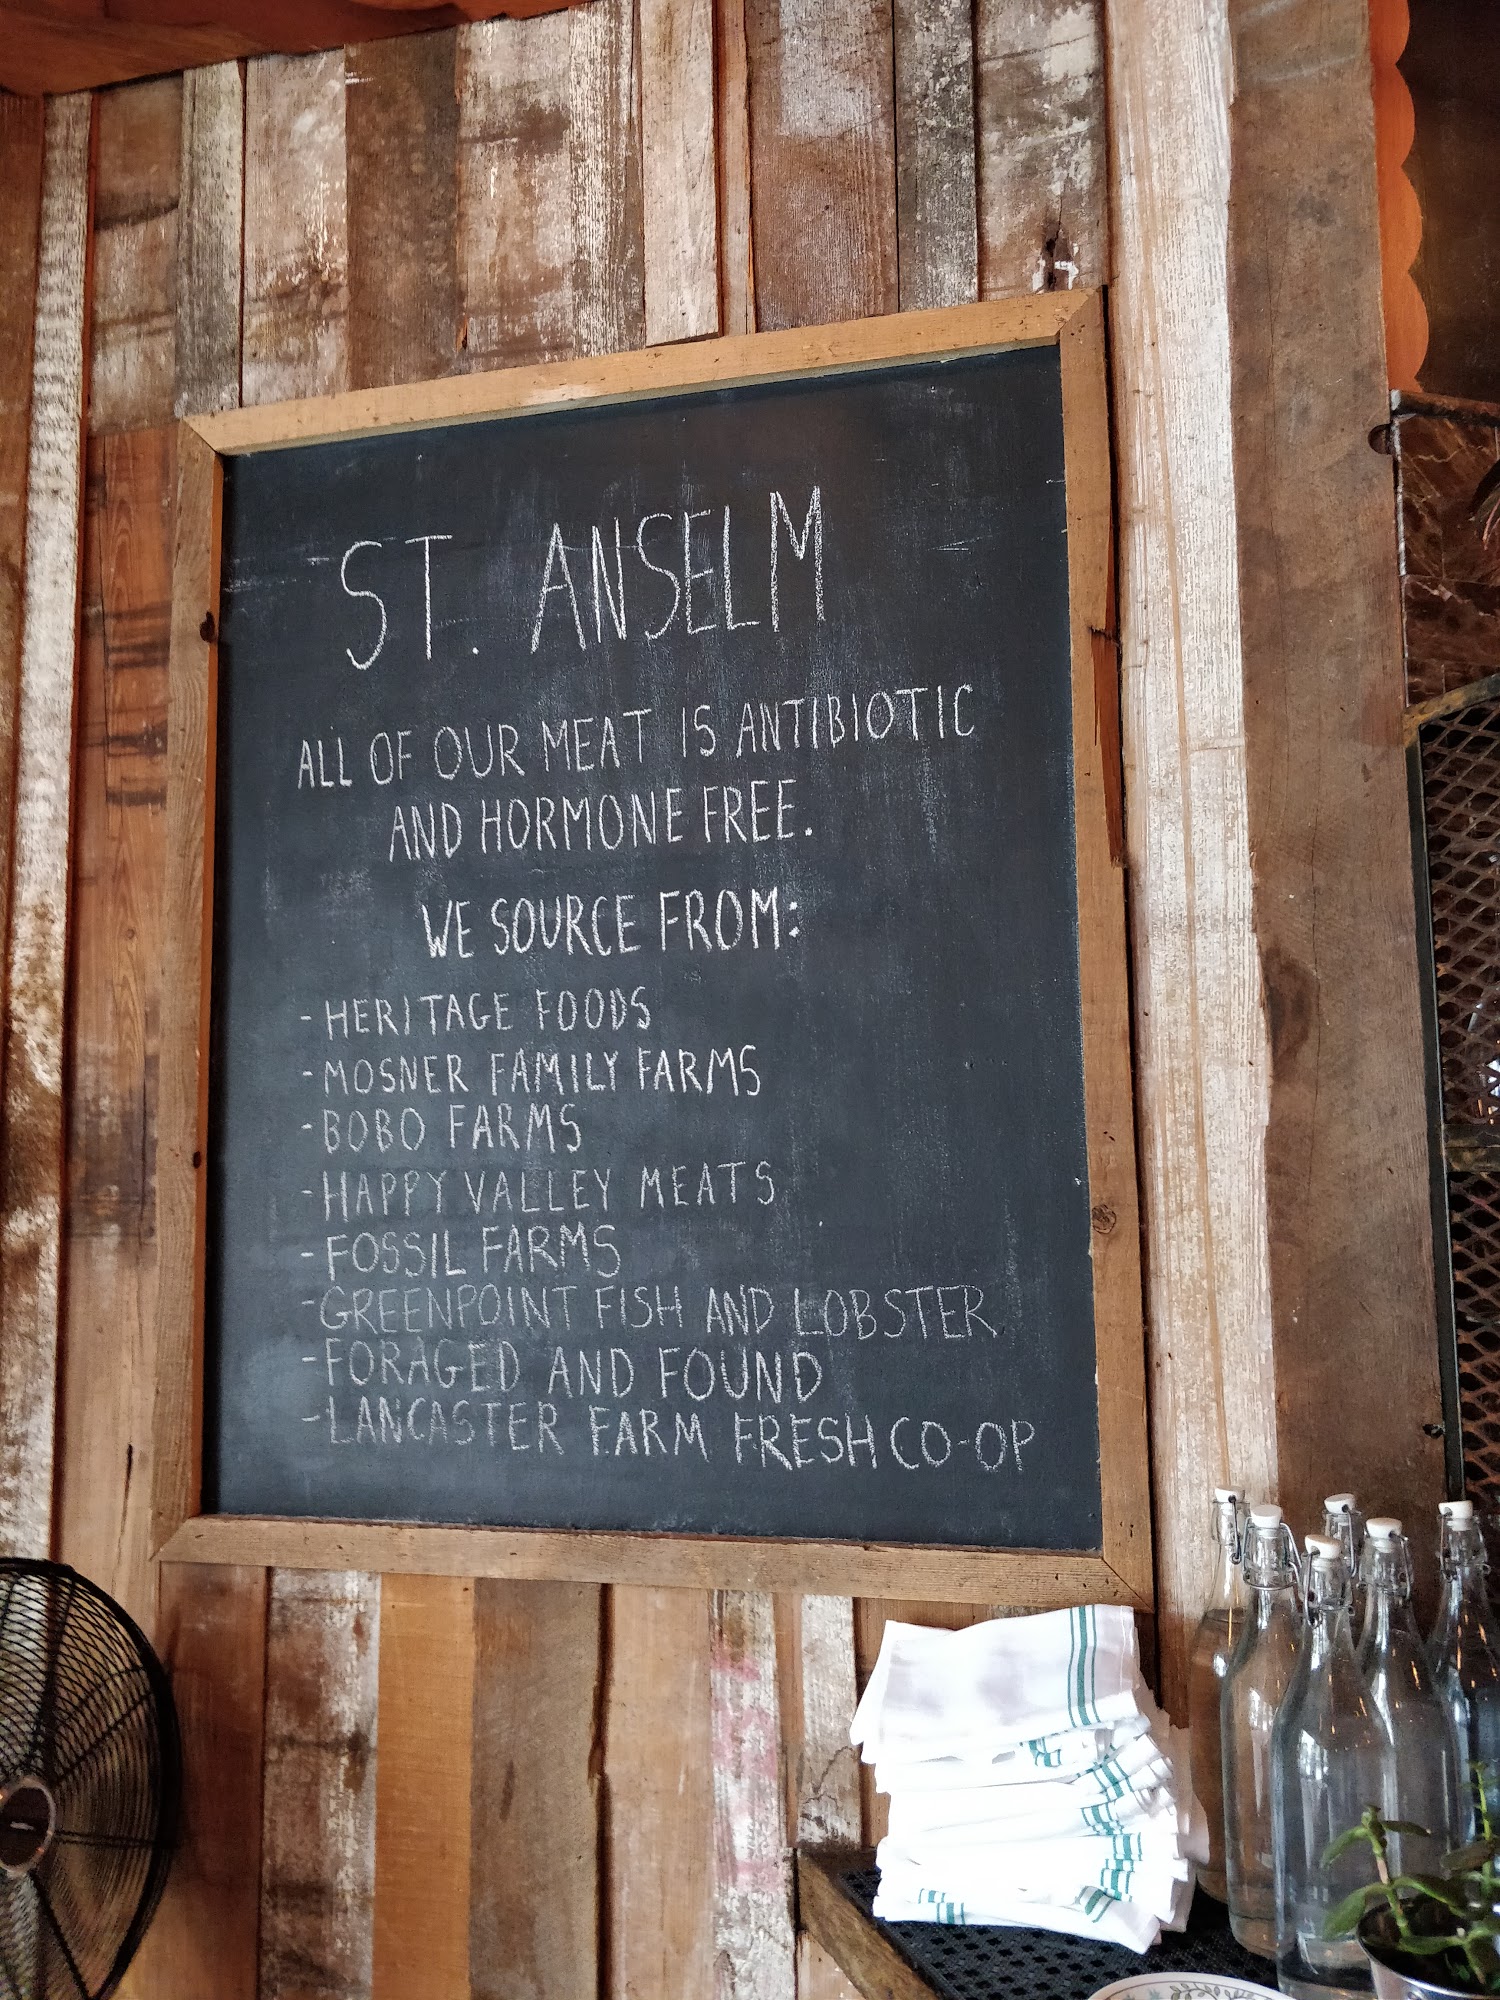 ST. ANSELM
ALL OF OUR MEAT IS ANTIBIOTIC
AND HORMONE FREE.
WE SOURCE FROM:
- HERITAGE FOODS
- MOSNER FAMILY FARMS
- BOBO FARMS
- HAPPY VALLEY MEATS
- FOSSIL FARMS
- GREENPOINT FISH AND LOBSTER
- FORAGED AND FOUND
- LANCASTER FARM FRESH CO-OP